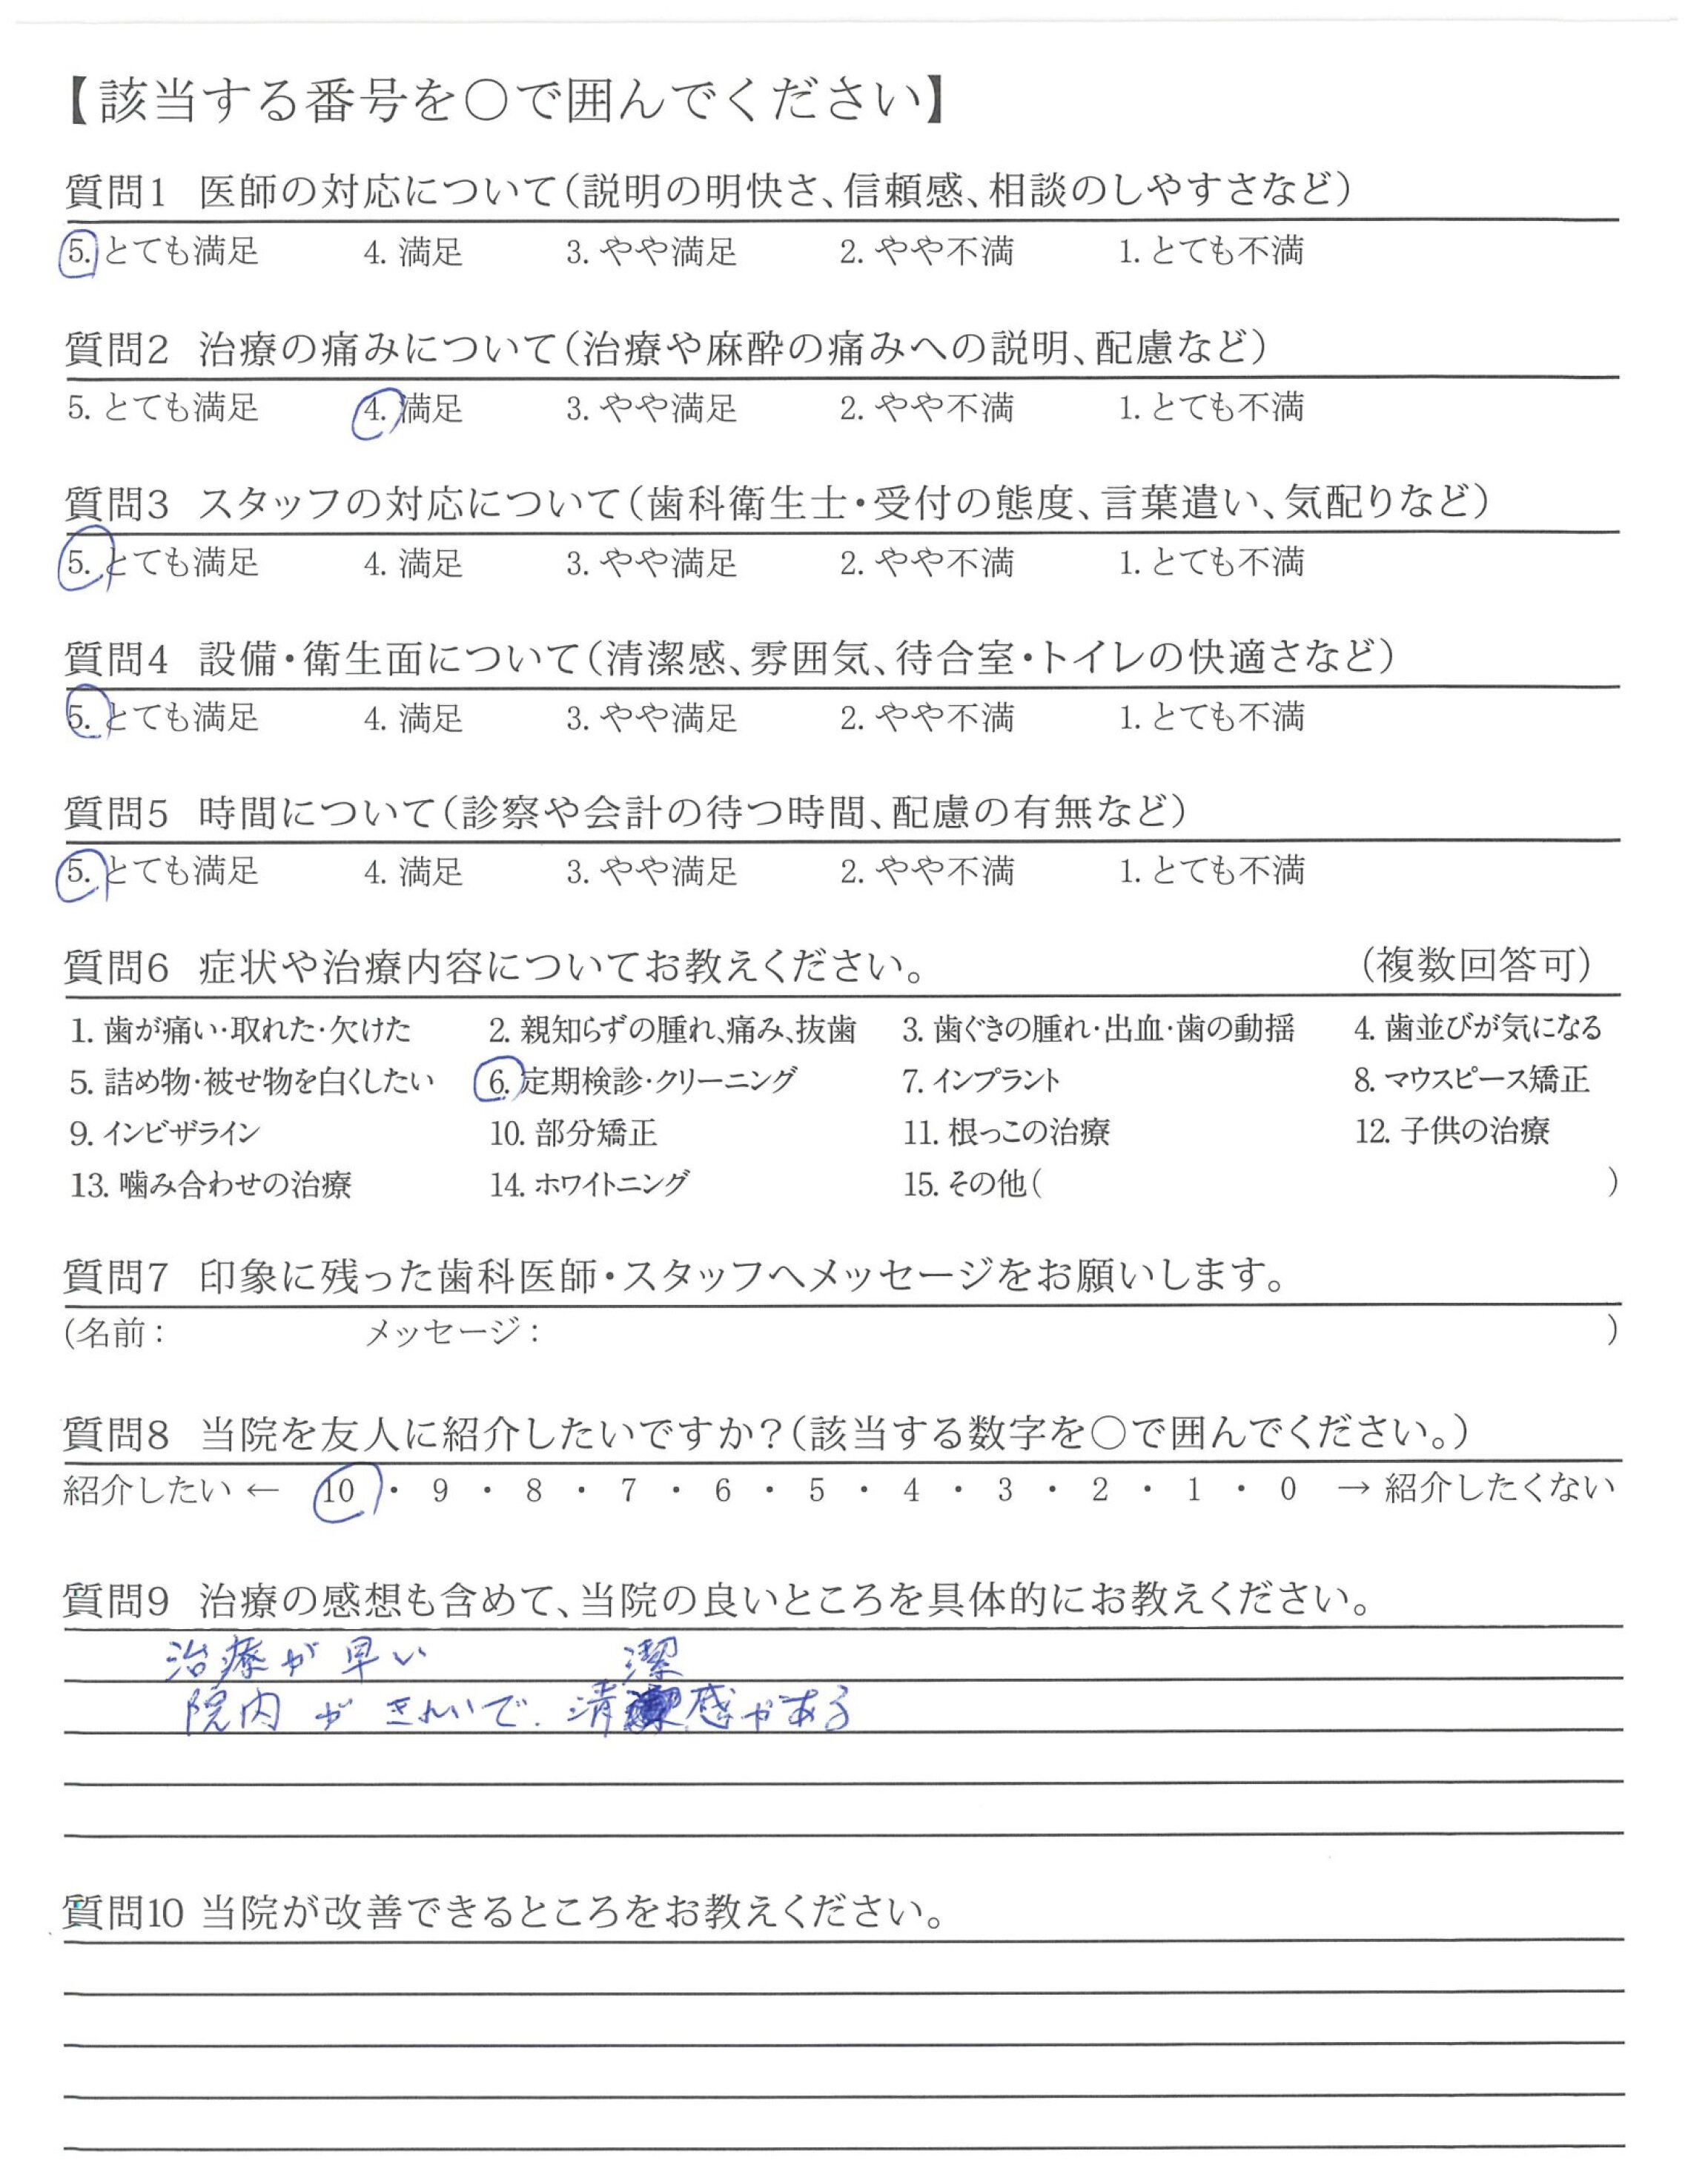 【該当する番号を○で囲んでください】
質問1 医師の対応について(説明の明快さ、信頼感、相談のしやすさなど)
5. とても満足 4. 満足 3. やや満足 2. やや不満 1. とても不満
質問2 治療の痛みについて(治療や麻酔の痛みへの説明、配慮など)
5. とても満足 4. 満足 3. やや満足 2. やや不満 1. とても不満
質問3 スタッフの対応について(歯科衛生士・受付の態度、言葉遣い、気配りなど)
5. とても満足 4. 満足 3. やや満足 2. やや不満 1. とても不満
質問4 設備・衛生面について(清潔感、雰囲気、待合室・トイレの快適さなど)
5. とても満足 4. 満足 3. やや満足 2. やや不満 1. とても不満
質問5 時間について(診察や会計の待つ時間、配慮の有無など)
5. とても満足 4. 満足 3. やや満足 2. やや不満 1. とても不満
質問6 症状や治療内容についてお教えください。 (複数回答可)
1. 歯が痛い・取れた・欠けた 2. 親知らずの腫れ、痛み、抜歯 3. 歯ぐきの腫れ・出血・歯の動揺 4. 歯並びが気になる
5. 詰め物・被せ物を白くしたい 6. 定期検診・クリーニング 7. インプラント 8. マウスピース矯正
9. インビザライン 10. 部分矯正 11. 根っこの治療 12. 子供の治療
13. 噛み合わせの治療 14. ホワイトニング 15. その他( )
質問7 印象に残った歯科医師・スタッフへメッセージをお願いします。
(名前: メッセージ: )
質問8 当院を友人に紹介したいですか?(該当する数字を○で囲んでください。)
紹介したい ← 10 ・ 9 ・ 8 ・ 7 ・ 6 ・ 5 ・ 4 ・ 3 ・ 2 ・ 1 ・ 0 → 紹介したくない
質問9 治療の感想も含めて、当院の良いところを具体的にお教えください。
治療が早い
院内がきれいで、清潔感がある
質問10 当院が改善できるところをお教えください。